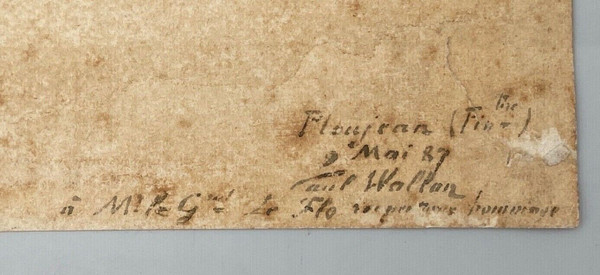 Ploujean (Fin^the)
9 Mai 87
Paul Wallon
à Mr. le Gral Le Flo respectueux hommage